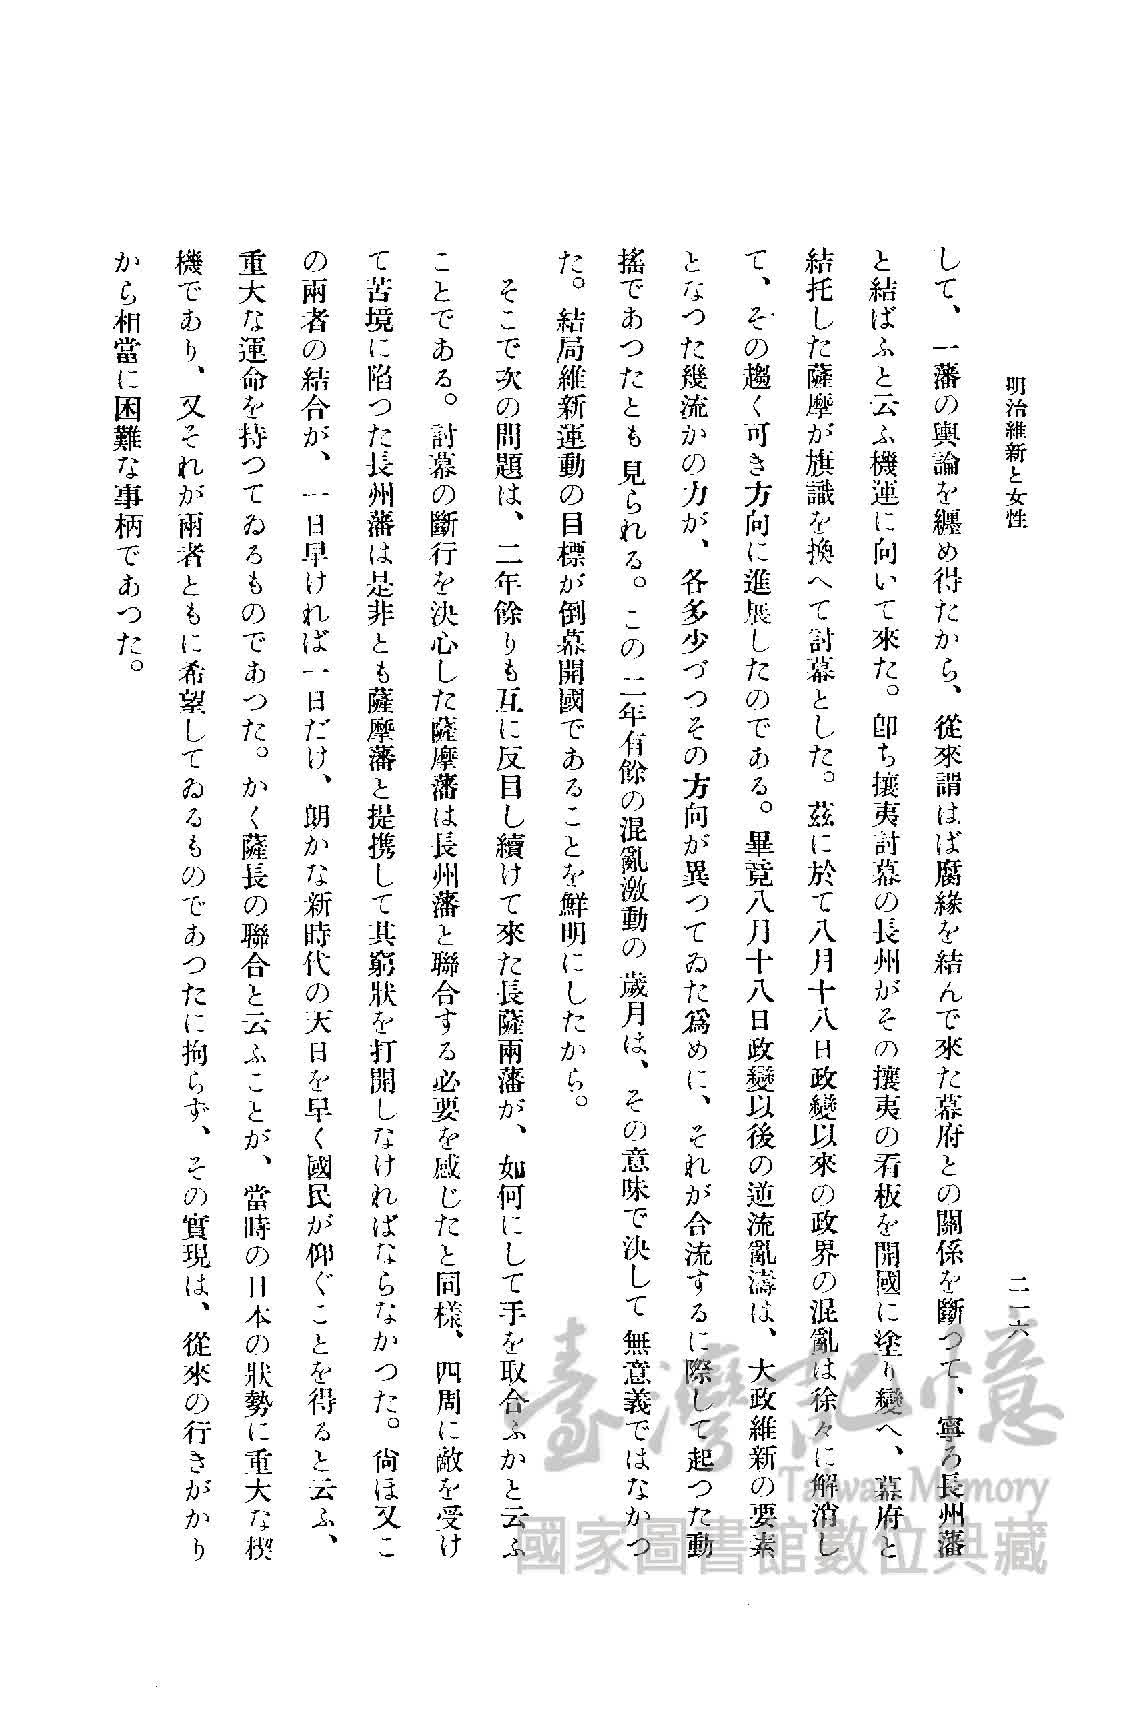 明治維新と女性
二一六
して、一藩の輿論を纒め得たから、從來謂はば腐緣を結んで來た幕府との關係を斷つて、寧ろ長州藩
と結ばふと云ふ機運に向いて來た。卽ち攘夷討幕の長州がその攘夷の看板を開國に塗り變へ、幕府と
結托した薩摩が旗識を換へて討幕とした。茲に於て八月十八日政變以來の政界の混亂は徐々に解消し
て、その趨く可き方向に進展したのである。畢竟八月十八日政變以後の逆流亂濤は、大政維新の要素
となつた幾流かの力が、各多少づつその方向が異つてゐた爲めに、それが合流するに際して起つた動
搖であつたとも見られる。この二年有餘の混亂激動の歲月は、その意味で決して無意義ではなかつ
た。結局維新運動の目標が倒幕開國であることを鮮明にしたから。
そこで次の問題は、二年餘りも互に反目し續けて來た長薩兩藩が、如何にして手を取合ふかと云ふ
ことである。討幕の斷行を決心した薩摩藩は長州藩と聯合する必要を感じたと同樣、四周に敵を受け
て苦境に陷つた長州藩は是非とも薩摩藩と提携して其窮狀を打開しなければならなかつた。尙ほ又こ
の兩者の結合が、一日早ければ一日だけ、朗かな新時代の天日を早く國民が仰ぐことを得ると云ふ、
重大な運命を持つてゐるものであつた。かく薩長の聯合と云ふことが、當時の日本の狀勢に重大な楔
機であり、又それが兩者ともに希望してゐるものであつたに拘らず、その實現は、從來の行きがかり
から相當に困難な事柄であつた。
臺灣記憶
Taiwan Memory
國家圖書館數位典藏